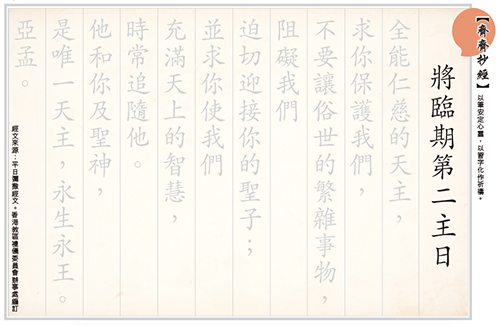 【齊齊抄經】
以筆安定心靈，以習字化作祈禱。
將臨期第二主日
全能仁慈的天主，
求你保護我們，
不要讓俗世的繁雜事物，
阻礙我們
迫切迎接你的聖子；
並求你使我們
充滿天上的智慧，
時常追隨他。
他和你及聖神，
是唯一天主，永生永王。
亞孟。
經文來源：平日彌撒經文。香港教區禮儀委員會辦事處編訂